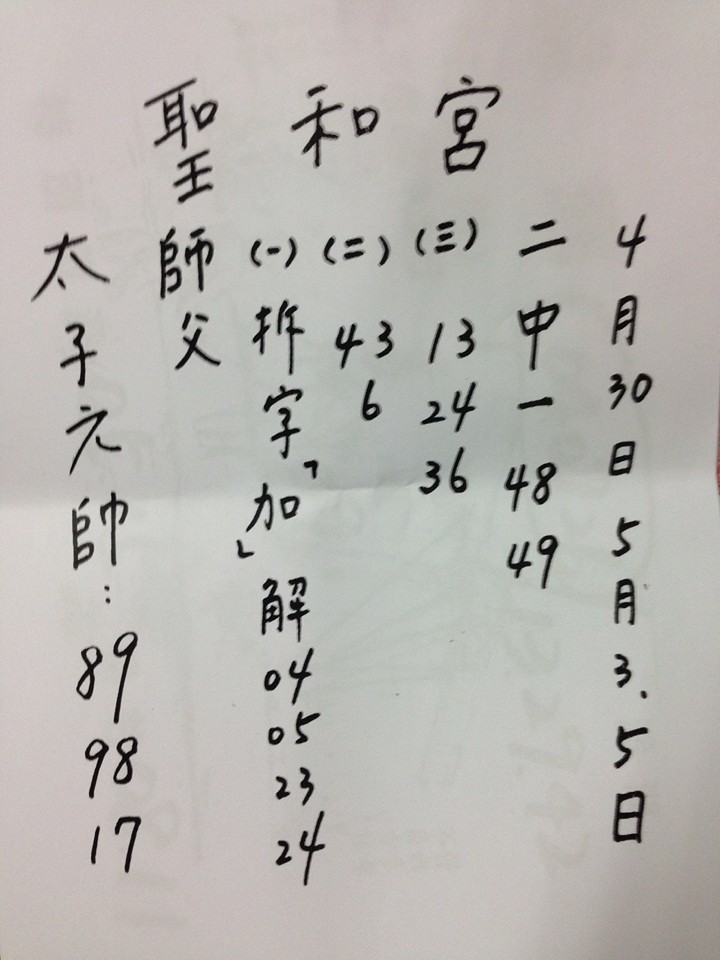 聖和宮
4月30日5月3.5日
二中一 48 49
(三) 13 24 36
(二) 43 6
(一) 拆字「加」解 04 05 23 24
師父
太子元帥: 89 98 17